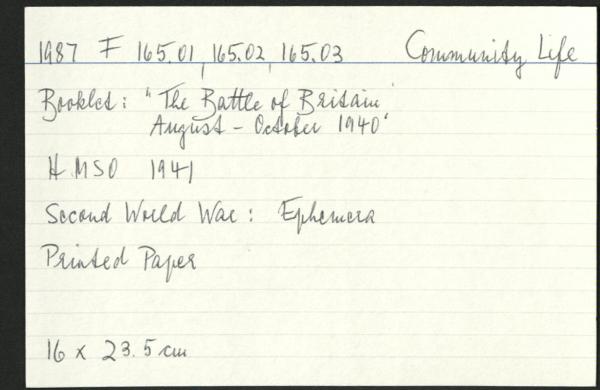 1987 F 165.01, 165.02, 165.03 Community Life
Booklet: "The Battle of Britain
August - October 1940"
H.M.S.O 1941
Second World War: Ephemera
Printed Paper
16 x 23.5 cm